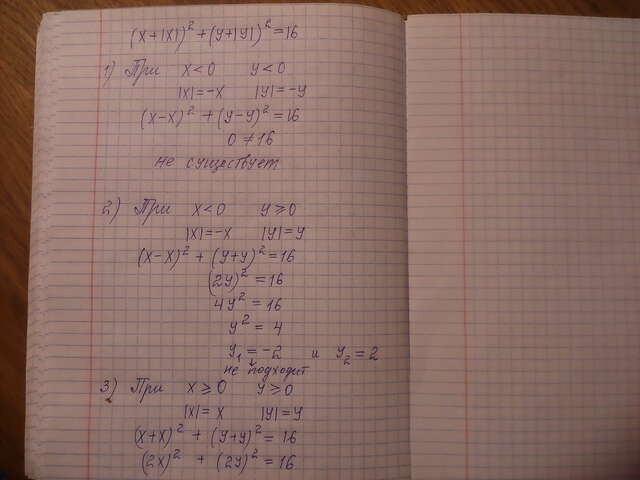 (x+|x|)²+(y+|y|)²=16
1) При x<0 y<0
|x|=-x |y|=-y
(x-x)²+(y-y)²=16
0≠16
не существует
2) При x<0 y⩾0
|x|=-x |y|=y
(x-x)²+(y+y)²=16
(2y)²=16
4y²=16
y²=4
y₁=-2 и y₂=2
не подходит
3) При x⩾0 y⩾0
|x|=x |y|=y
(x+x)²+(y+y)²=16
(2x)²+(2y)²=16